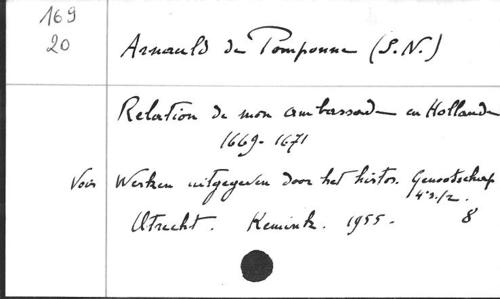 169
20
Arnauld de Pomponne (S.N.)
Relation de mon ambassade en Hollande
1669-1671
Voir Werken uitgegeven door het histor. Genootschap
4e s./2.
Utrecht. Kemink. 1955. 8